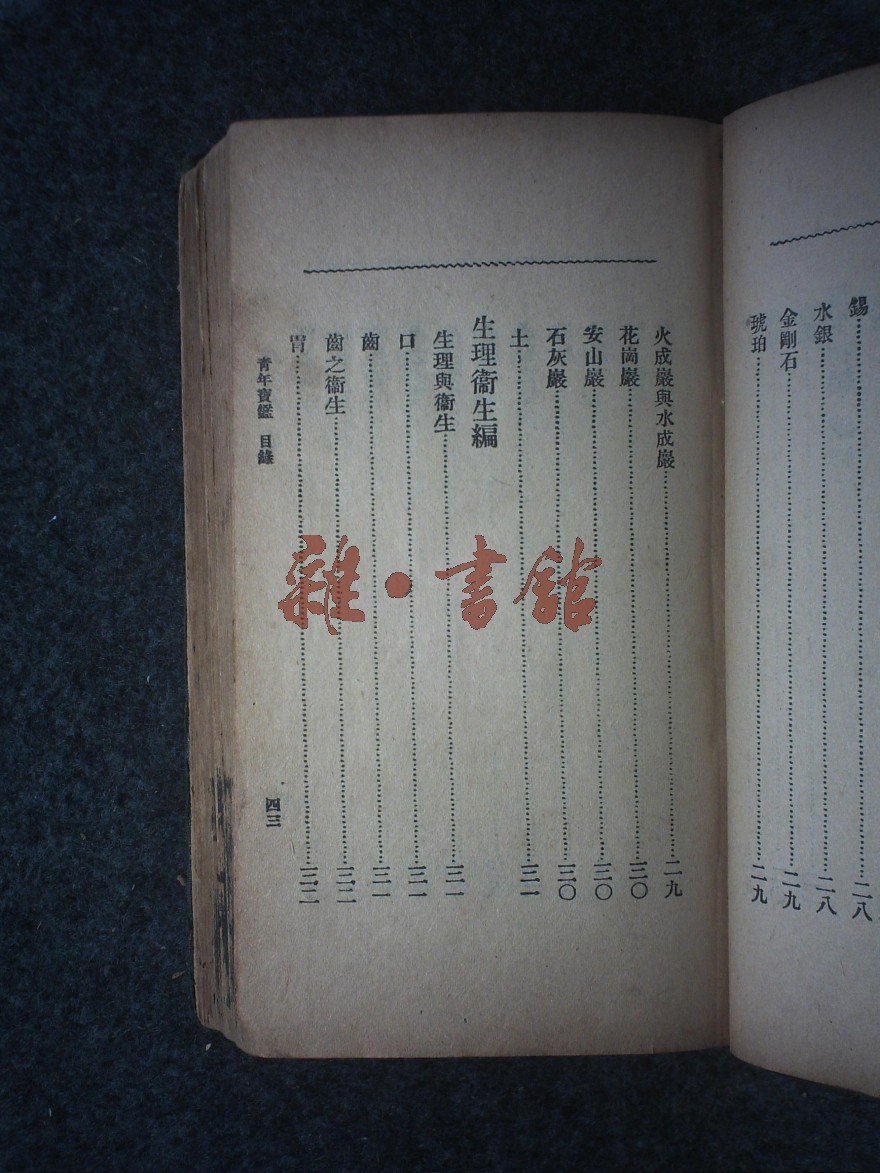 錫……二八
水銀……二八
金剛石……二九
琥珀……二九
火成巖與水成巖……二九
花崗巖……三〇
安山巖……三〇
石灰巖……三〇
土……三一
生理衞生編
生理與衞生……三一
口……三一
齒……三一
齒之衞生……三二
胃……三二
青年寶鑑 目錄
四三
雜·書館